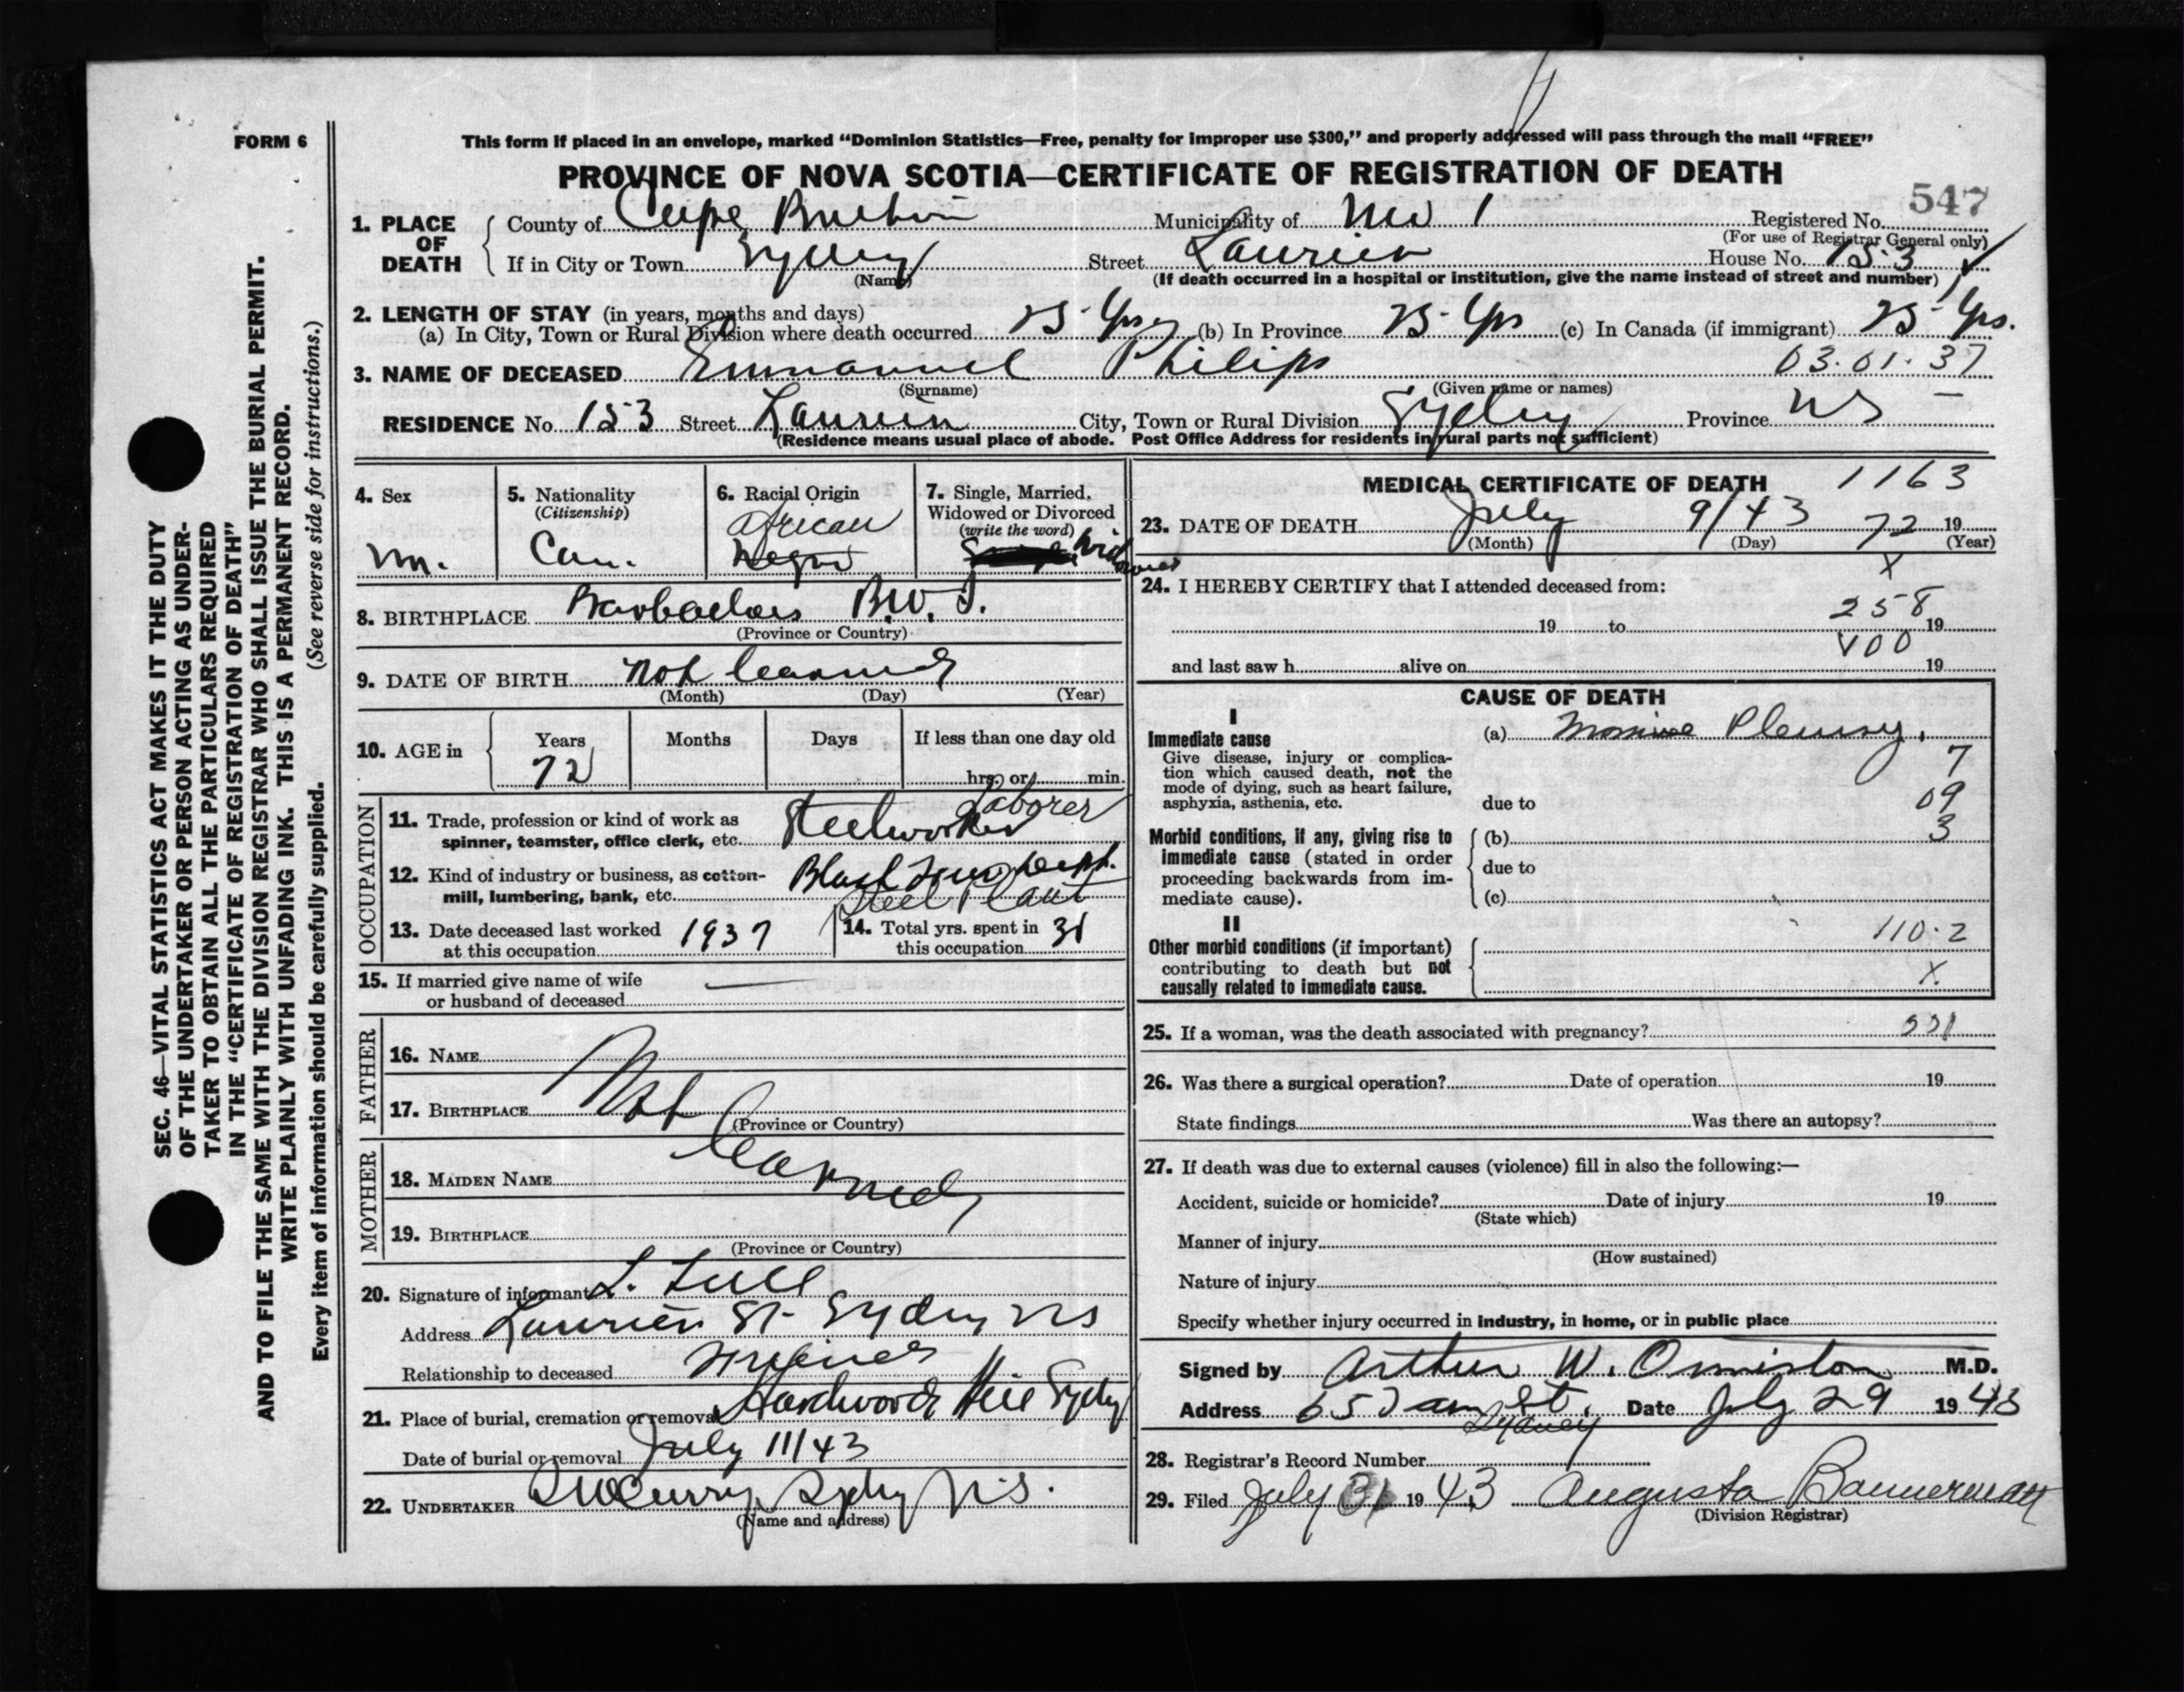 FORM 6
This form if placed in an envelope, marked “Dominion Statistics—Free, penalty for improper use $300,” and properly addressed will pass through the mail “FREE”
PROVINCE OF NOVA SCOTIA—CERTIFICATE OF REGISTRATION OF DEATH
547
1. PLACE OF DEATH
County of Cape Breton Municipality of No 1 Registered No.
(For use of Registrar General only)
If in City or Town Sydney Street Laurier House No. 153
(Name) (If death occurred in a hospital or institution, give the name instead of street and number)
2. LENGTH OF STAY (in years, months and days)
(a) In City, Town or Rural Division where death occurred 25 Yrs (b) In Province 25 Yrs (c) In Canada (if immigrant) 25 Yrs.
3. NAME OF DECEASED Emmanuel Philips 03.01.37
(Surname) (Given name or names)
RESIDENCE No. 153 Street Laurier City, Town or Rural Division Sydney Province NS
(Residence means usual place of abode. Post Office Address for residents in rural parts not sufficient)
4. Sex
M.
5. Nationality
(Citizenship)
Can.
6. Racial Origin
African
Negro
7. Single, Married, Widowed or Divorced
(write the word)
Widower
8. BIRTHPLACE Barbados B.W.I.
(Province or Country)
9. DATE OF BIRTH not learned
(Month) (Day) (Year)
10. AGE in
Years Months Days If less than one day old
72 hrs. or min.
OCCUPATION
11. Trade, profession or kind of work as
spinner, teamster, office clerk, etc. Steelworker Laborer
12. Kind of industry or business, as cotton-
mill, lumbering, bank, etc. Blast Dept.
Steel Plant
13. Date deceased last worked
at this occupation 1937
14. Total yrs. spent in
this occupation 31
15. If married give name of wife
or husband of deceased
FATHER
16. NAME
17. BIRTHPLACE Not
(Province or Country)
MOTHER
learned
18. MAIDEN NAME
19. BIRTHPLACE
(Province or Country)
20. Signature of informant L.
Address Laurier St Sydney NS
Relationship to deceased
21. Place of burial, cremation or removal Hardwood Hill Sydney
Date of burial or removal July 11/43
22. UNDERTAKER Sydney N.S.
(Name and address)
MEDICAL CERTIFICATE OF DEATH 1163
23. DATE OF DEATH July 9/43 72 19
(Month) (Day) (Year)
X
24. I HEREBY CERTIFY that I attended deceased from:
258
19 to 19
400
and last saw h alive on 19
CAUSE OF DEATH
I
Immediate cause
Give disease, injury or complica-
tion which caused death, not the
mode of dying, such as heart failure,
asphyxia, asthenia, etc.
(a) Pleurisy.
7
due to 09
Morbid conditions, if any, giving rise to
immediate cause (stated in order
proceeding backwards from im-
mediate cause).
(b) 3
due to
(c)
II
Other morbid conditions (if important)
contributing to death but not
causally related to immediate cause.
110.2
X.
25. If a woman, was the death associated with pregnancy?
26. Was there a surgical operation? Date of operation 19
State findings Was there an autopsy?
27. If death was due to external causes (violence) fill in also the following:—
Accident, suicide or homicide? Date of injury 19
(State which)
Manner of injury
(How sustained)
Nature of injury
Specify whether injury occurred in industry, in home, or in public place
Signed by Arthur W. Ormiston M.D.
Address 65 St. Date July 29 1943
Sydney
28. Registrar's Record Number
29. Filed July 31 1943 Augusta Bannerman
(Division Registrar)
SEC. 46—VITAL STATISTICS ACT MAKES IT THE DUTY
OF THE UNDERTAKER OR PERSON ACTING AS UNDER-
TAKER TO OBTAIN ALL THE PARTICULARS REQUIRED
IN THE “CERTIFICATE OF REGISTRATION OF DEATH”
AND TO FILE THE SAME WITH THE DIVISION REGISTRAR WHO SHALL ISSUE THE BURIAL PERMIT.
WRITE PLAINLY WITH UNFADING INK. THIS IS A PERMANENT RECORD.
Every item of information should be carefully supplied. (See reverse side for instructions.)